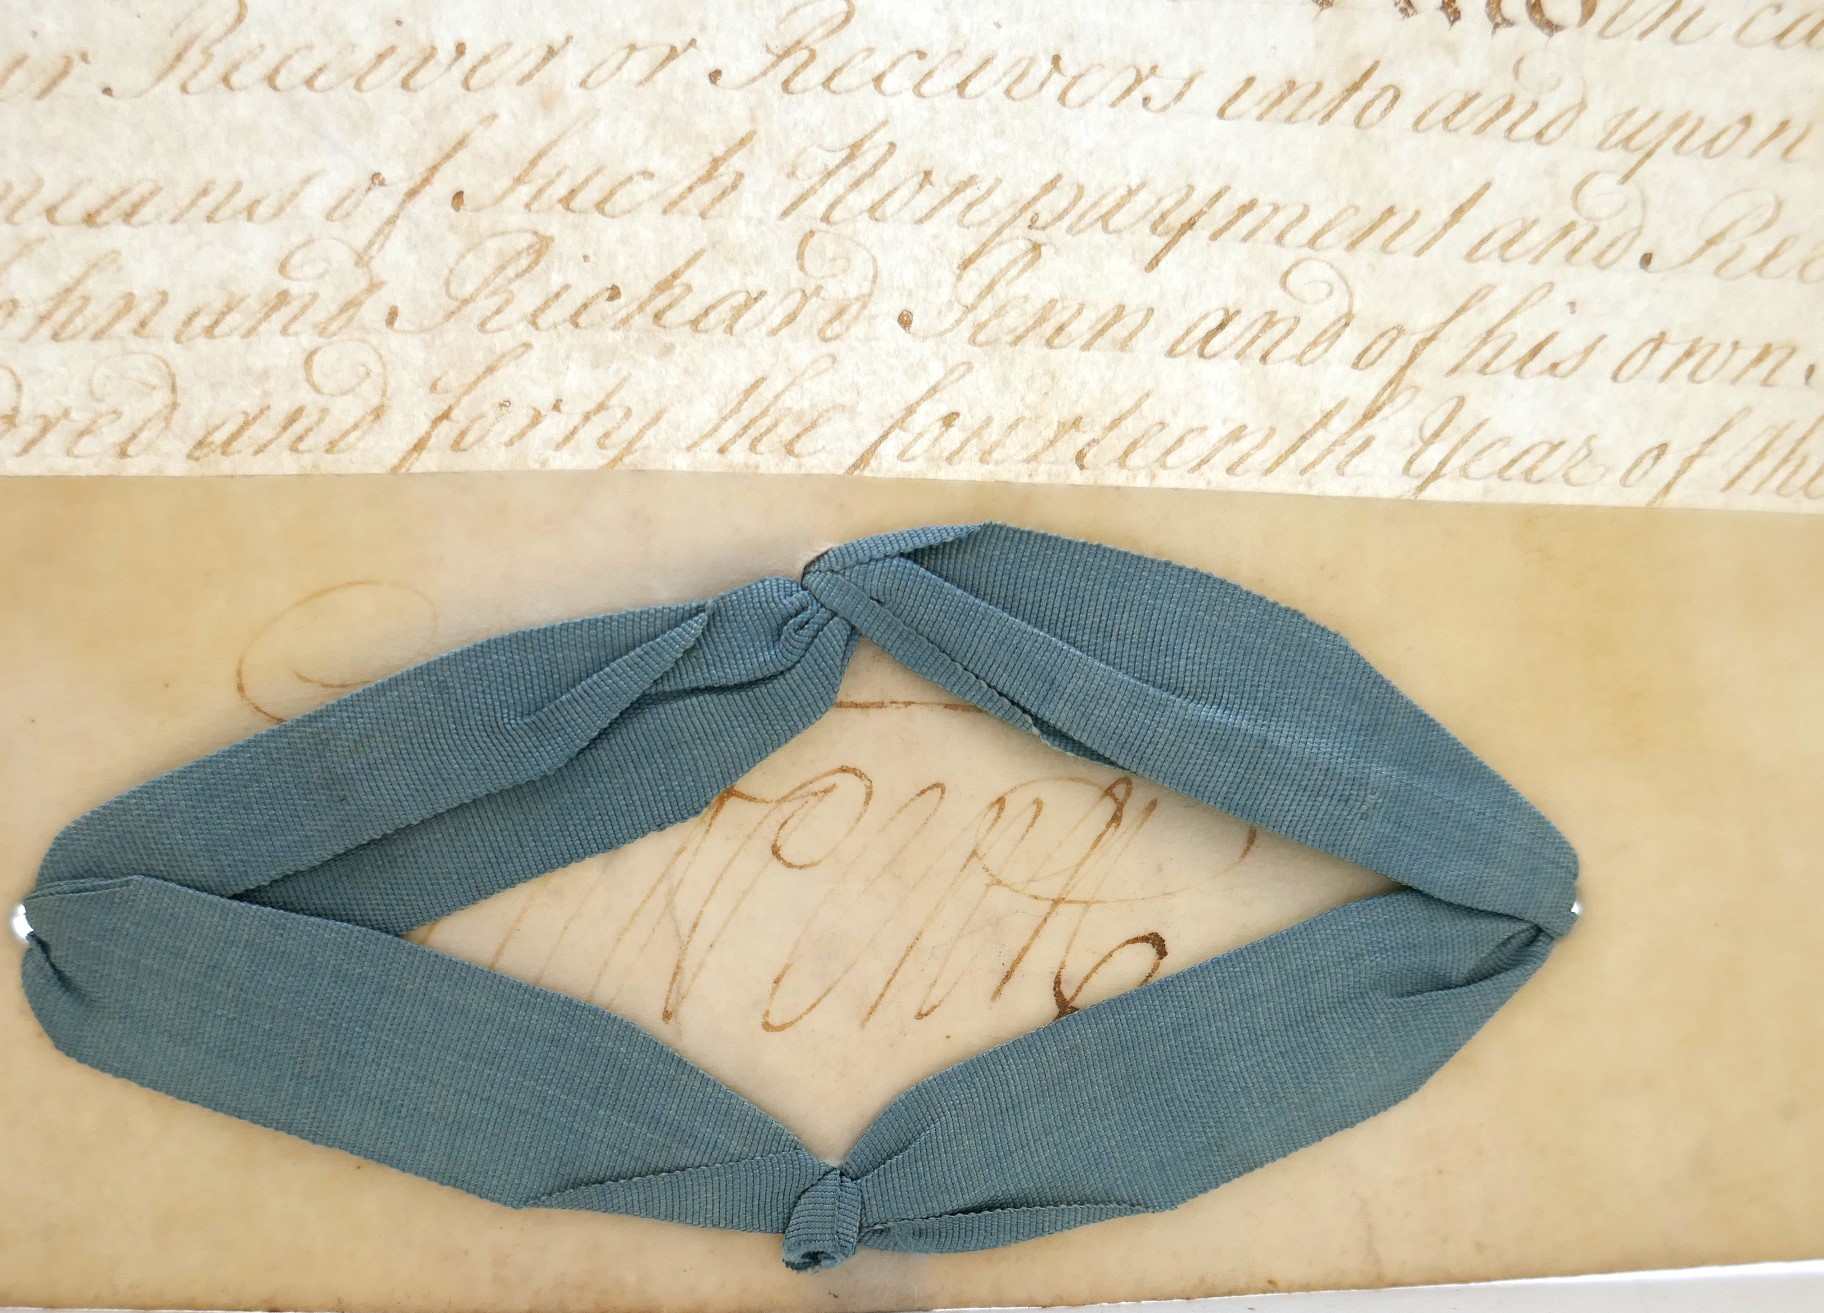 in ca
ir Receiver or Receivers into and upon
means of Such Nonpayment and Ree
ohn and Richard Penn and of his own
dred and forty the fourteenth Year of the